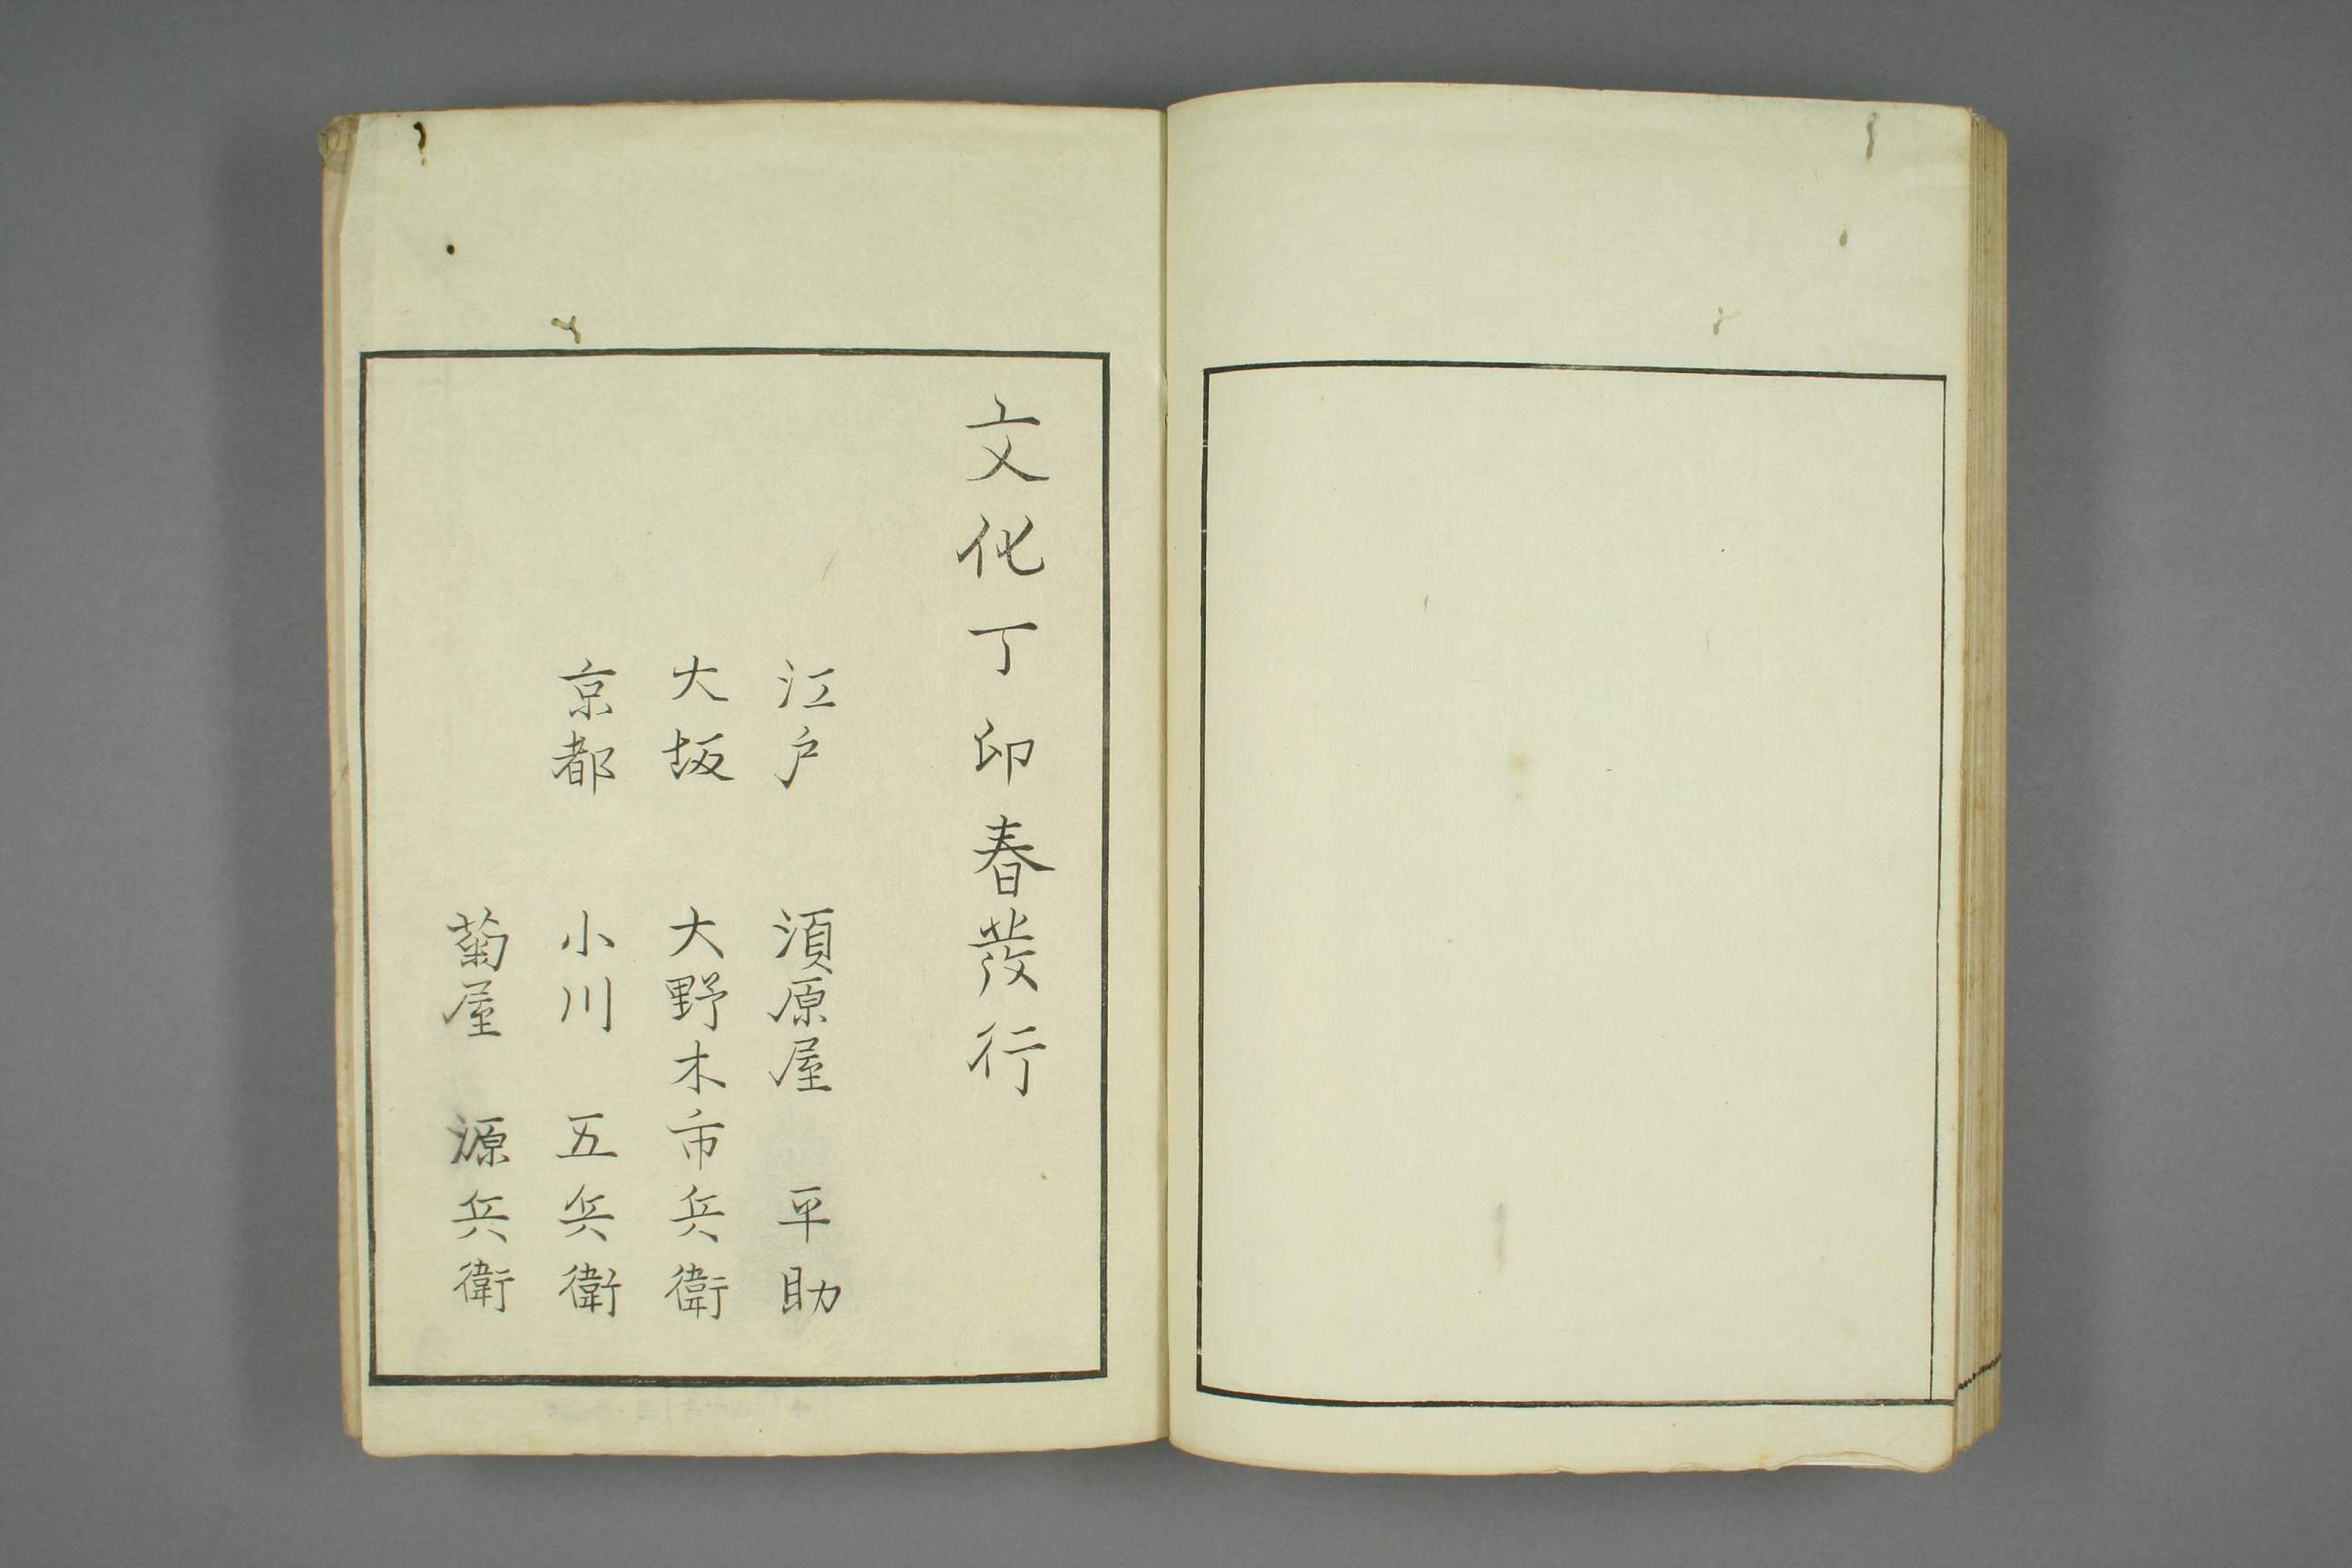 文化丁卯春發行
江戸　須原屋　平助
大坂　大野木市兵衛
京都　小川　五兵衛
菊屋　源兵衛